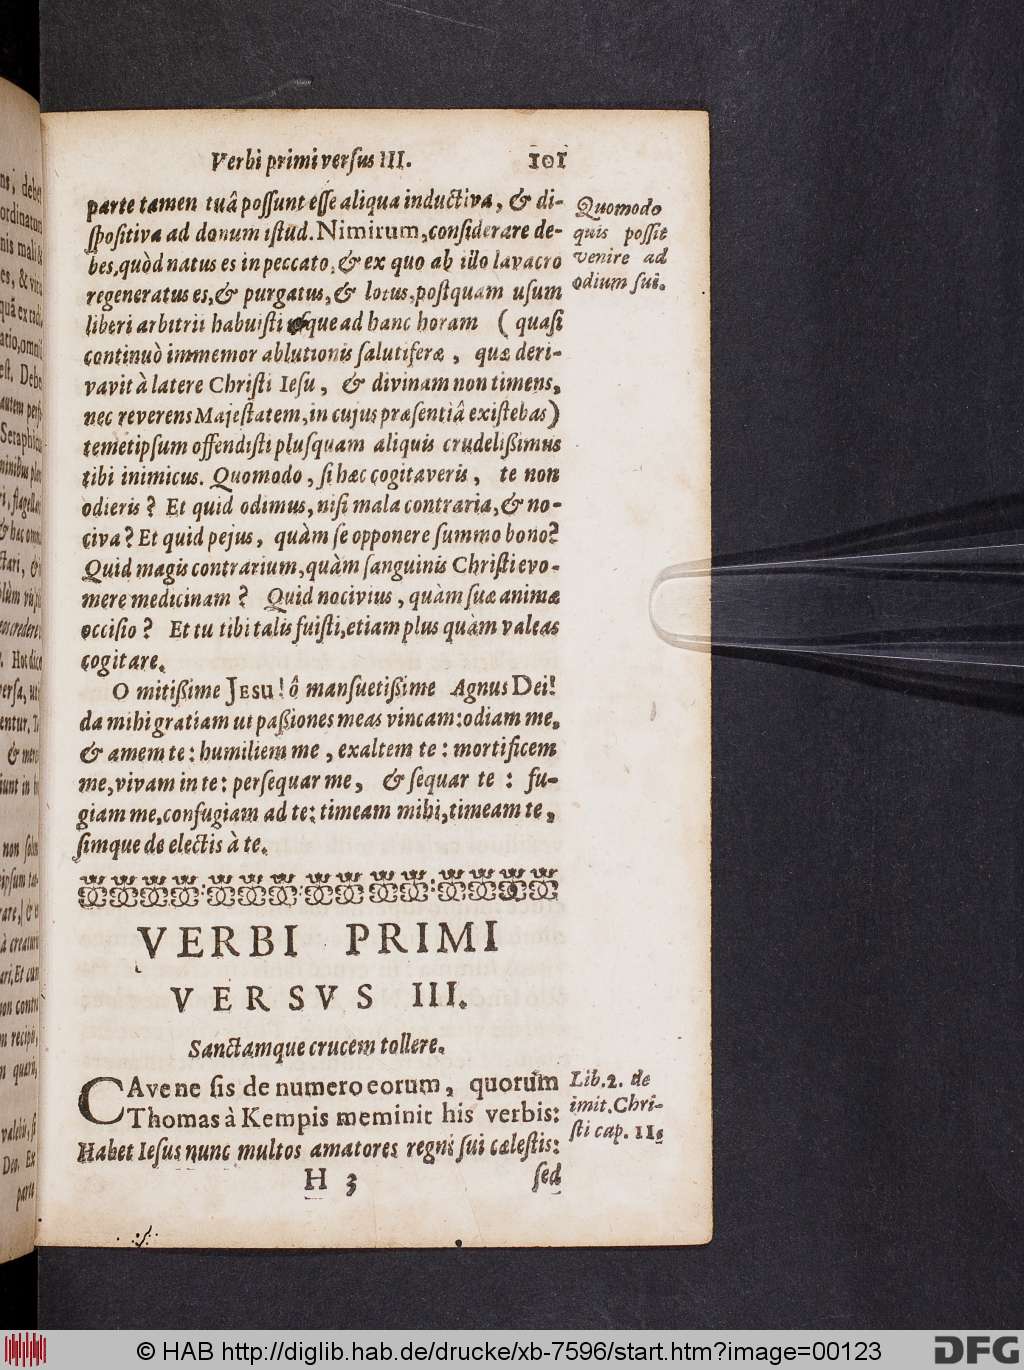 Verbi primi verſus III. 101
parte tamen tuâ poſſunt eſſe aliqua inductiva, & di-
ſpoſitiva ad donum iſtud. Nimirum, conſiderare de-
bes, quòd natus es in peccato, & ex quo ab illo lavacro
regeneratus es, & purgatus, & lotus, poſtquam uſum
liberi arbitrii habuiſti uſque ad hanc horam ( quaſi
continuò immemor ablutionis ſalutiferæ, quæ deri-
vavit à latere Chriſti Ieſu, & divinam non timens,
nec reverens Majeſtatem, in cujus præſentiâ exiſtebas)
temetipſum offendiſti pluſquam aliquis crudelißimus
tibi inimicus. Quomodo, ſi hæc cogitaveris, te non
odieris? Et quid odimus, niſi mala contraria, & no-
civa? Et quid pejus, quàm ſe opponere ſummo bono?
Quid magis contrarium, quàm ſanguinis Chriſti evo-
mere medicinam? Quid nocivius, quàm ſuæ animæ
occiſio? Et tu tibi talis fuiſti, etiam plus quàm valeas
cogitare.
Quomodo
quis poſſit
venire ad
odium ſui.
O mitißime JESU! ô manſuetißime Agnus Dei!
da mihi gratiam ut paßiones meas vincam: odiam me,
& amem te: humiliem me, exaltem te: mortificem
me, vivam in te: perſequar me, & ſequar te: fu-
giam me, confugiam ad te: timeam mihi, timeam te,
ſimque de electis à te.
VERBI PRIMI
VERSVS III.
Sanctamque crucem tollere.
CAve ne ſis de numero eorum, quorum
Thomas à Kempis meminit his verbis:
Habet Ieſus nunc multos amatores regni ſui cæleſtis:
Lib. 2. de
imit. Chri-
ſti cap. 11.
H 3 ſed
© HAB http://diglib.hab.de/drucke/xb-7596/start.htm?image=00123
DFG